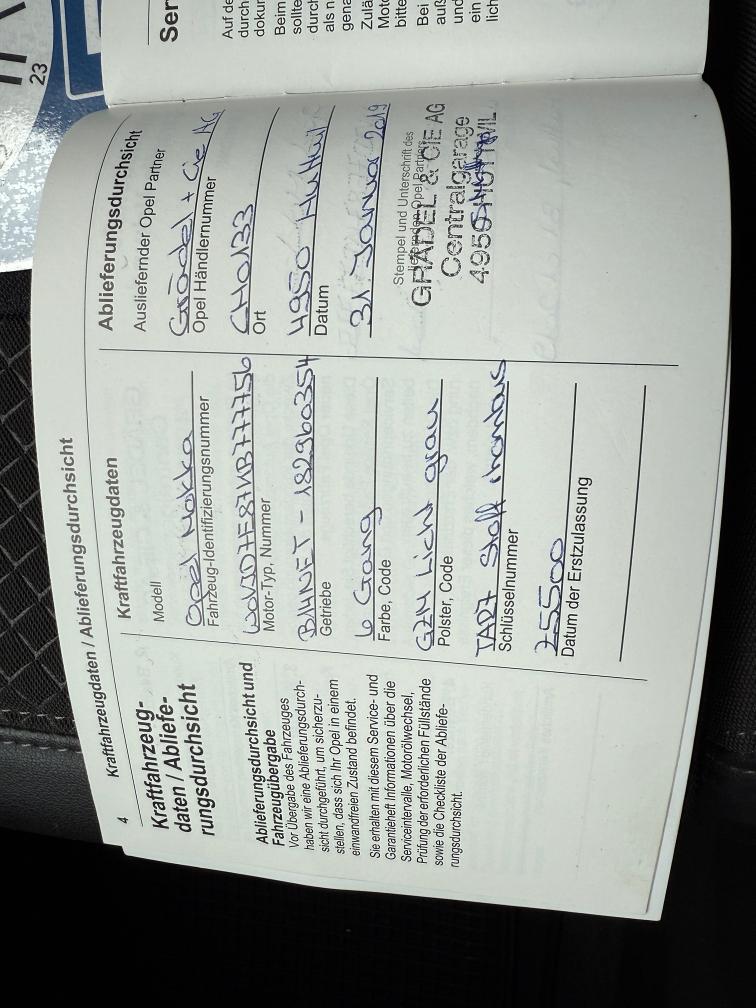 4
Kraftfahrzeugdaten / Ablieferungsdurchsicht
Kraftfahrzeug-
daten / Abliefe-
rungsdurchsicht
Ablieferungsdurchsicht und
Fahrzeugübergabe
Vor Übergabe des Fahrzeuges
haben wir eine Ablieferungsdurch-
sicht durchgeführt, um sicherzu-
stellen, dass sich Ihr Opel in einem
einwandfreien Zustand befindet.
Sie erhalten mit diesem Service- und
Garantieheft Informationen über die
Serviceintervalle, Motorölwechsel,
Prüfung der erforderlichen Füllstände
sowie die Checkliste der Abliefe-
rungsdurchsicht.
Kraftfahrzeugdaten
Modell
Opel Mokka
Fahrzeug-Identifizierungsnummer
Motor-Typ, Nummer
Getriebe
6 Gang
Farbe, Code
Licht grau
Polster, Code
TAD7 Stoff rhombus
Schlüsselnummer
75500
Datum der Erstzulassung
Ablieferungsdurchsicht
Ausliefernder Opel Partner
Grädel + Cie AG
Opel Händlernummer
CH0133
Ort
4950 Huttwil
Datum
31 Januar 2019
Stempel und Unterschrift des
GRÄDEL & CIE AG
Centralgarage
4950 HUTTWIL
Ser
Auf de
durch
dokur
Beim
sollte
durch
als n
gena
Zulä
Mot
bitte
Bei
auß
und
ein
lich
23